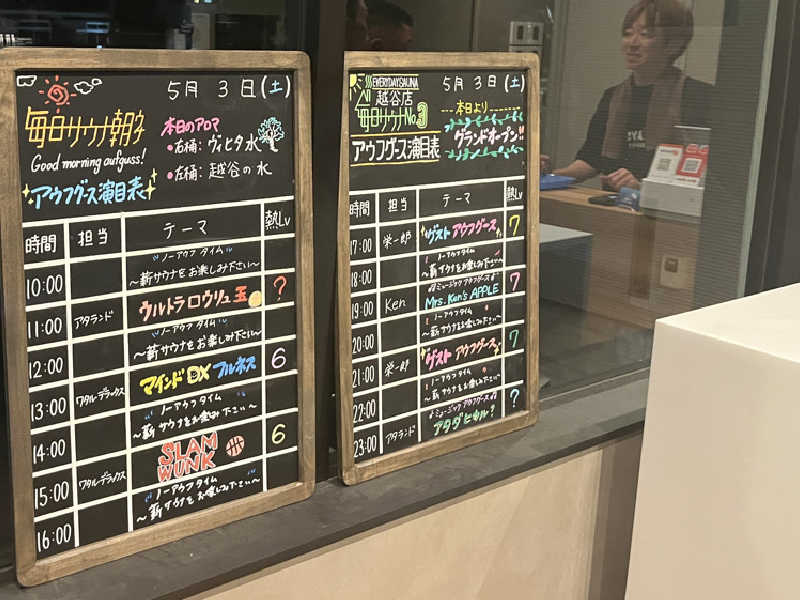 5月 3日(土)
毎日サウナ 朝
Good morning aufguss!
アウフグース演目表
本日のアロマ
●右桶: ヴィヒタ水
●左桶: 越谷の水
時間 担当 テーマ 熱Lv
10:00 "ノーアウフ タイム" ~薪サウナをお楽しみ下さい~
11:00 アタランド ウルトラロウリュ玉 ?
12:00 "ノーアウフ タイム" ~薪サウナをお楽しみ下さい~
13:00 ワタル・デラックス マインド DX フルネス 6
14:00 "ノーアウフタイム" ~薪サウナをお楽しみ下さい~
15:00 ワタル・デラックス SLAM WUNK 6
16:00 "ノーアウフ タイム" ~薪サウナをお楽しみ下さい~
EVERYDAYSAUNA
越谷店
毎日サウナNo.3
アウフグース演目表
5月 3日(土)
本日より
グランドオープン
時間 担当 テーマ 熱Lv
17:00 栄一郎 ゲスト アウフグース 7
18:00 ノーアウフ タイム ~薪サウナをお楽しみ下さい~
19:00 Ken ミュージック アウフグース Mrs. Ken's APPLE 7
20:00 ノーアウフ タイム ~薪サウナをお楽しみ下さい~
21:00 栄一郎 ゲスト アウフグース 7
22:00 ノーアウフ タイム ~薪サウナをお楽しみ下さい~
23:00 アタランド ミュージック アウフグース アタデヒル ?